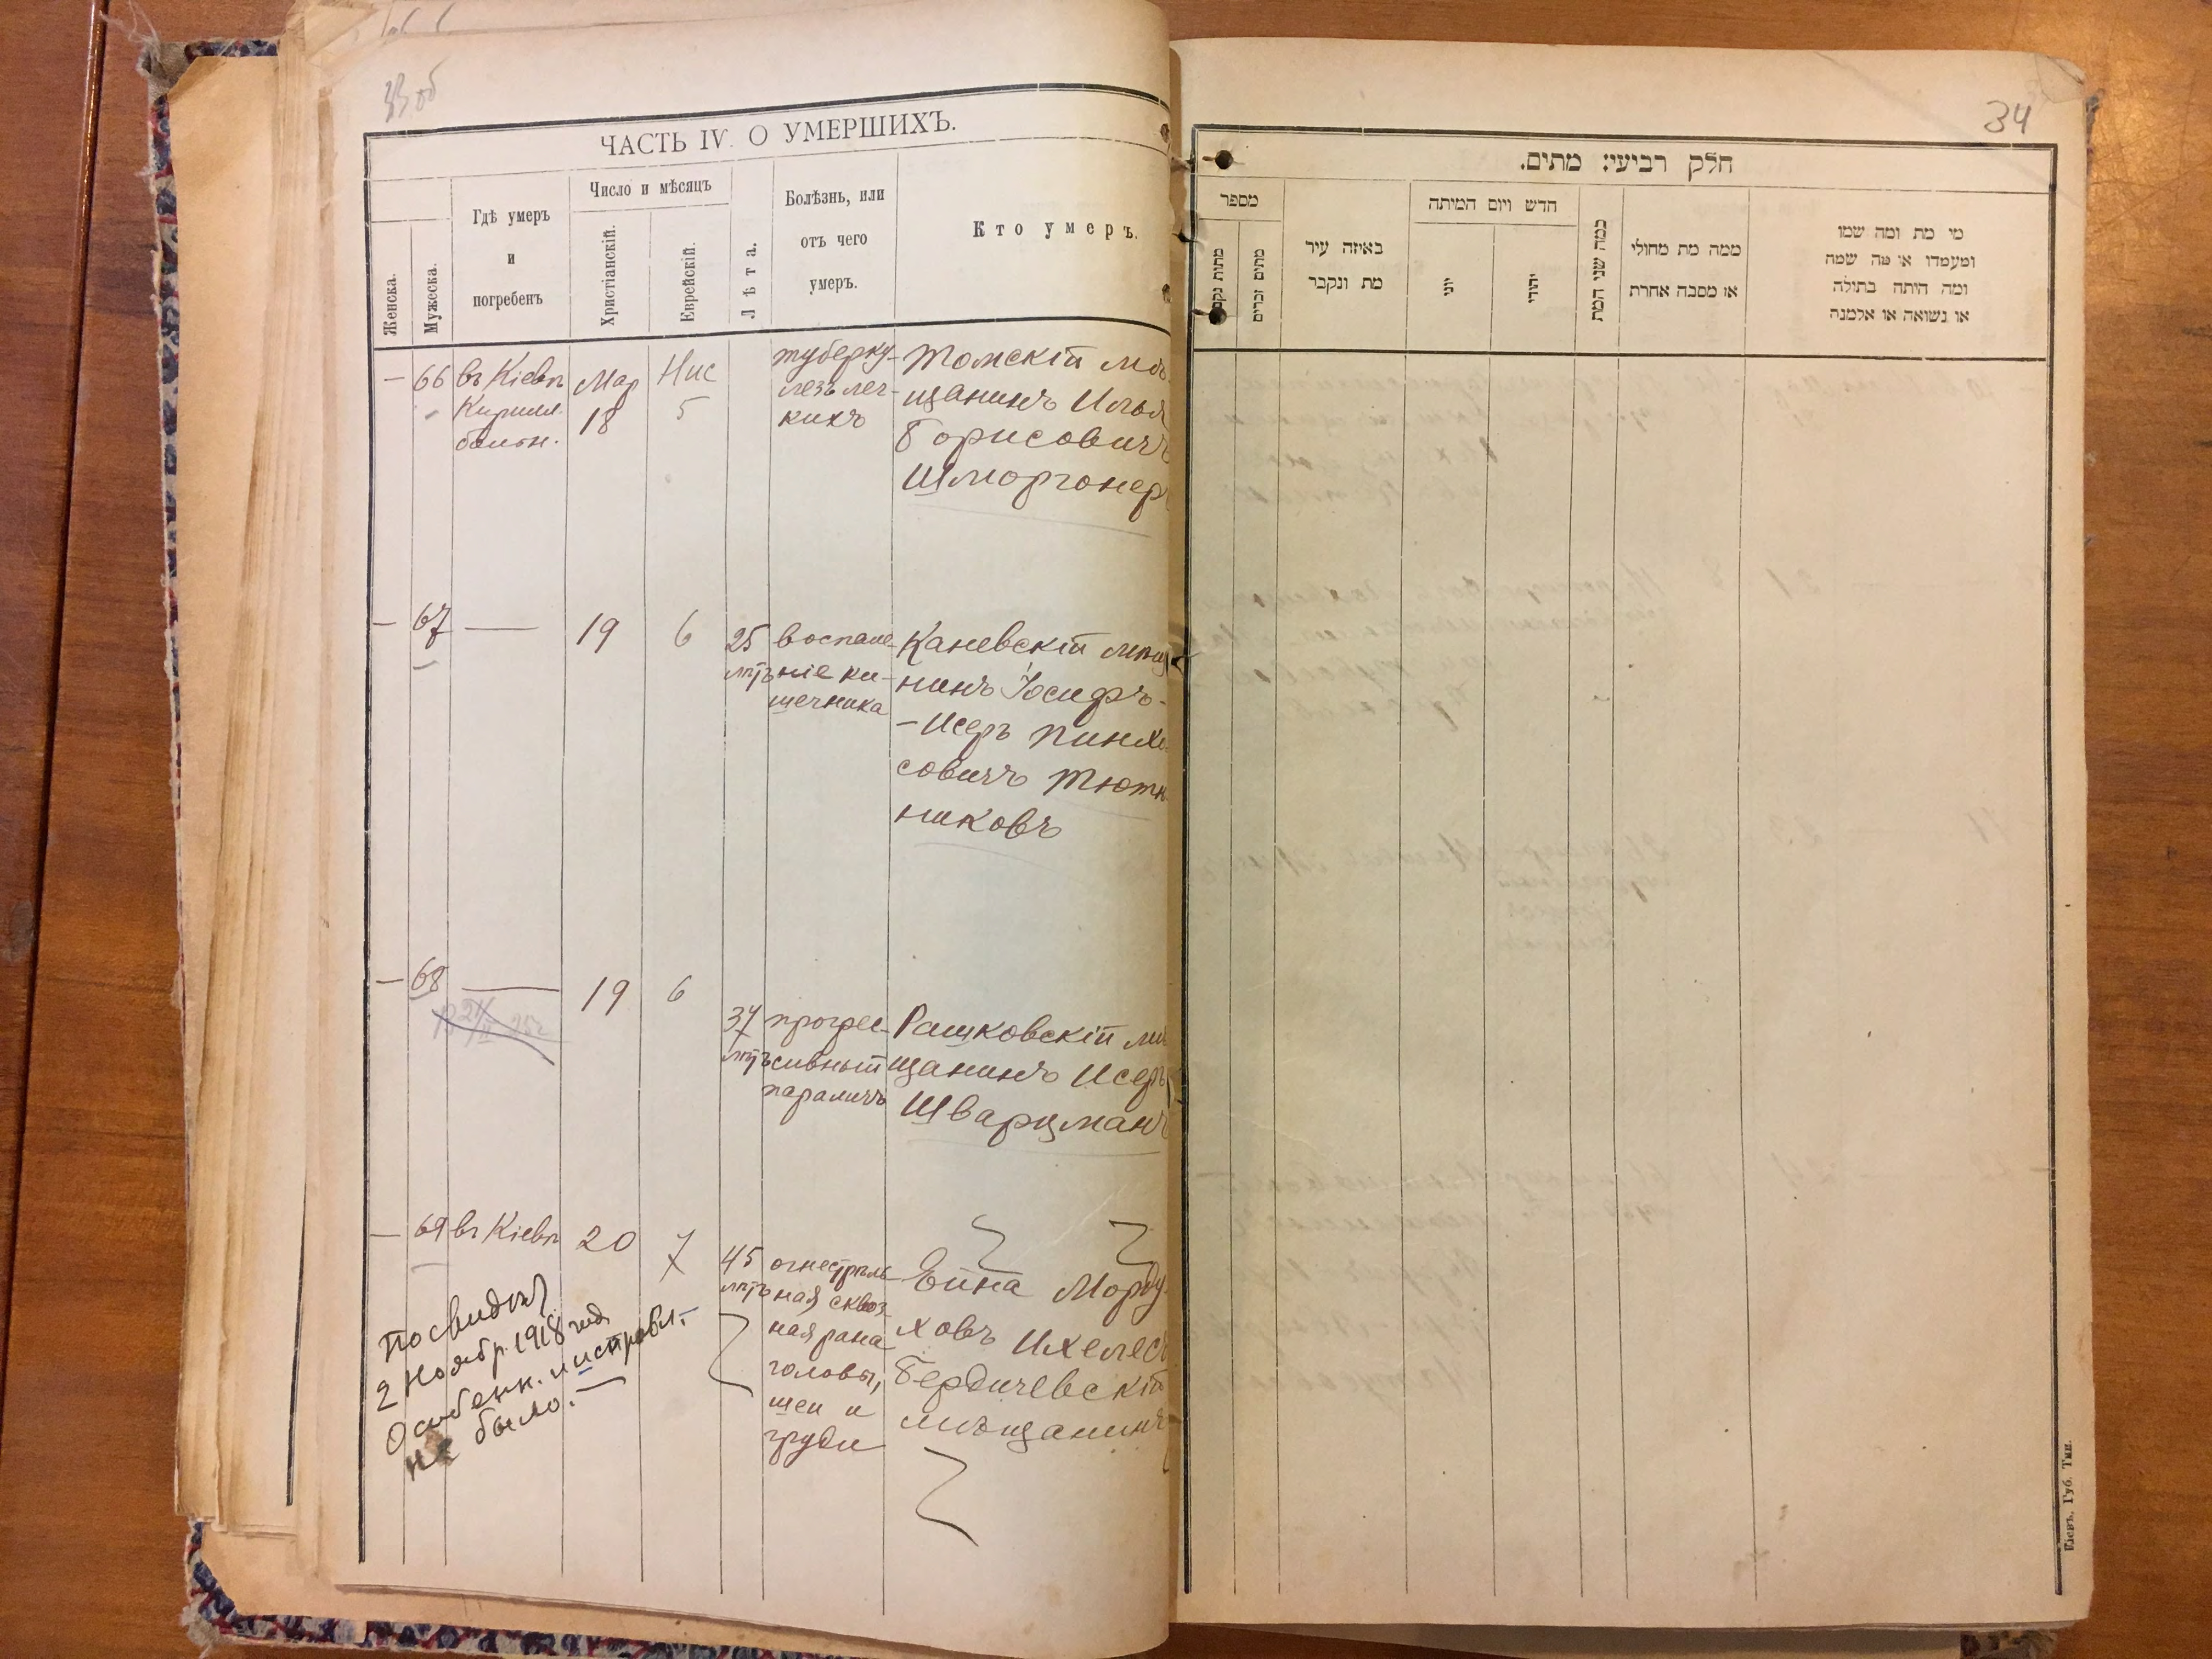 33 об
ЧАСТЬ IV. О УМЕРШИХЪ.
Женска.
Мужеска.
Гдѣ умеръ
и
погребенъ
Число и мѣсяцъ
Христіанскій.
Еврейскій.
Лѣта.
Болѣзнь, или
отъ чего
умеръ.
Кто умеръ.
— 66 въ Кіевѣ
Кирилл.
больн.
Мар
18
Нис
5
туберку-
лезъ лег-
кихъ
Томскій мѣ-
щанинъ Илья
Борисовичъ
Шморгонер
— 67 — 19 6
25
лѣтъ
воспале-
ніе ки-
шечника
Каневскій мѣщ
нинъ Іосифъ-
-Исеръ Пинхо
совичъ Тютю
никовъ
— 68 — 19 6
37
лѣтъ
прогрес-
сивный
параличъ
Рашковскій мѣ
щанинъ Исеръ
Шварцманъ
— 69 въ Кіевѣ 20 7
45
лѣтъ
огнестрѣль-
ная сквоз-
ная рана
головы,
шеи и
груди
Морду-
ховъ Ихелесъ
Бердичевскій
мѣщанинъ
2 Ноябр. 1918 года
Особенн. и исправл.
не было. —
34
חלק רביעי: מתים.
מספר
מתות נקבות
מתים זכרים
באיזה עיר
מת ונקבר
חדש ויום המיתה
יוני
יהודי
כמה שני המת
ממה מת מחולי
או מסבה אחרת
מי מת ומה שמו
ומעמדו או מה שמה
ומה היתה בתולה
או נשואה או אלמנה
Кіевъ. Губ. Тип.